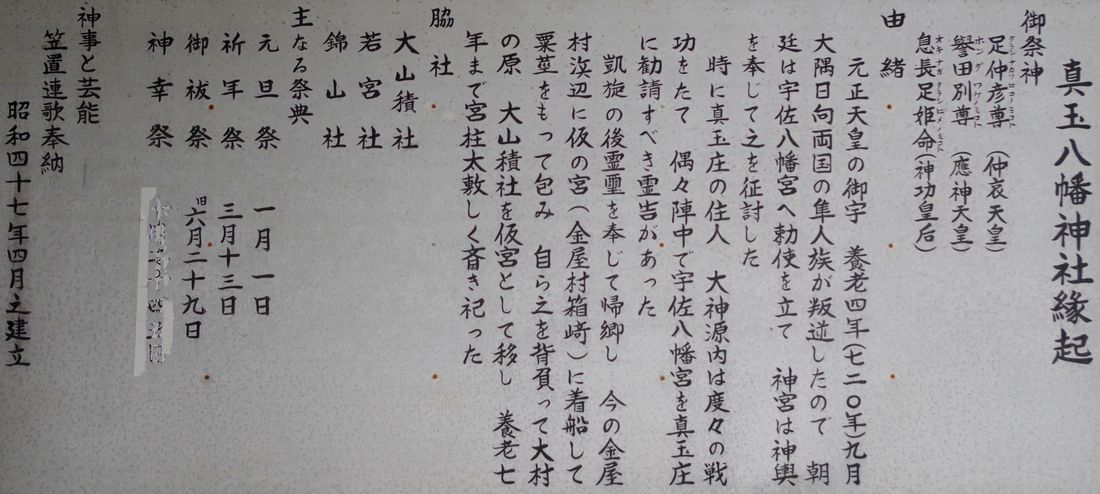 真玉八幡神社縁起
御祭神
足仲彦尊(仲哀天皇)
誉田別尊(應神天皇)
息長足姫命(神功皇后)
由緒
元正天皇の御宇 養老四年(七二〇年)九月
大隅日向両国の隼人族が叛逆したので 朝
廷は宇佐八幡宮へ勅使を立て 神宮は神輿
を奉じて之を征討した
時に真玉庄の住人 大神源内は度々の戦
功をたて 偶々陣中で宇佐八幡宮を真玉庄
に勧請すべき霊告があった
凱旋の後霊璽を奉じて帰郷し 今の金屋
村渓辺に仮の宮(金屋村箱崎)に着船して
粟茎をもって包み 自ら之を背負って大村
の原 大山積社を仮宮として移し 養老七
年まで宮柱太敷しく斎き祀った
脇社
大山積社
若宮社
錦山社
主なる祭典
元旦祭 一月一日
祈年祭 三月十三日
御祓祭 旧六月二十九日
神幸祭
神事と芸能
笠置連歌奉納
昭和四十七年四月之建立